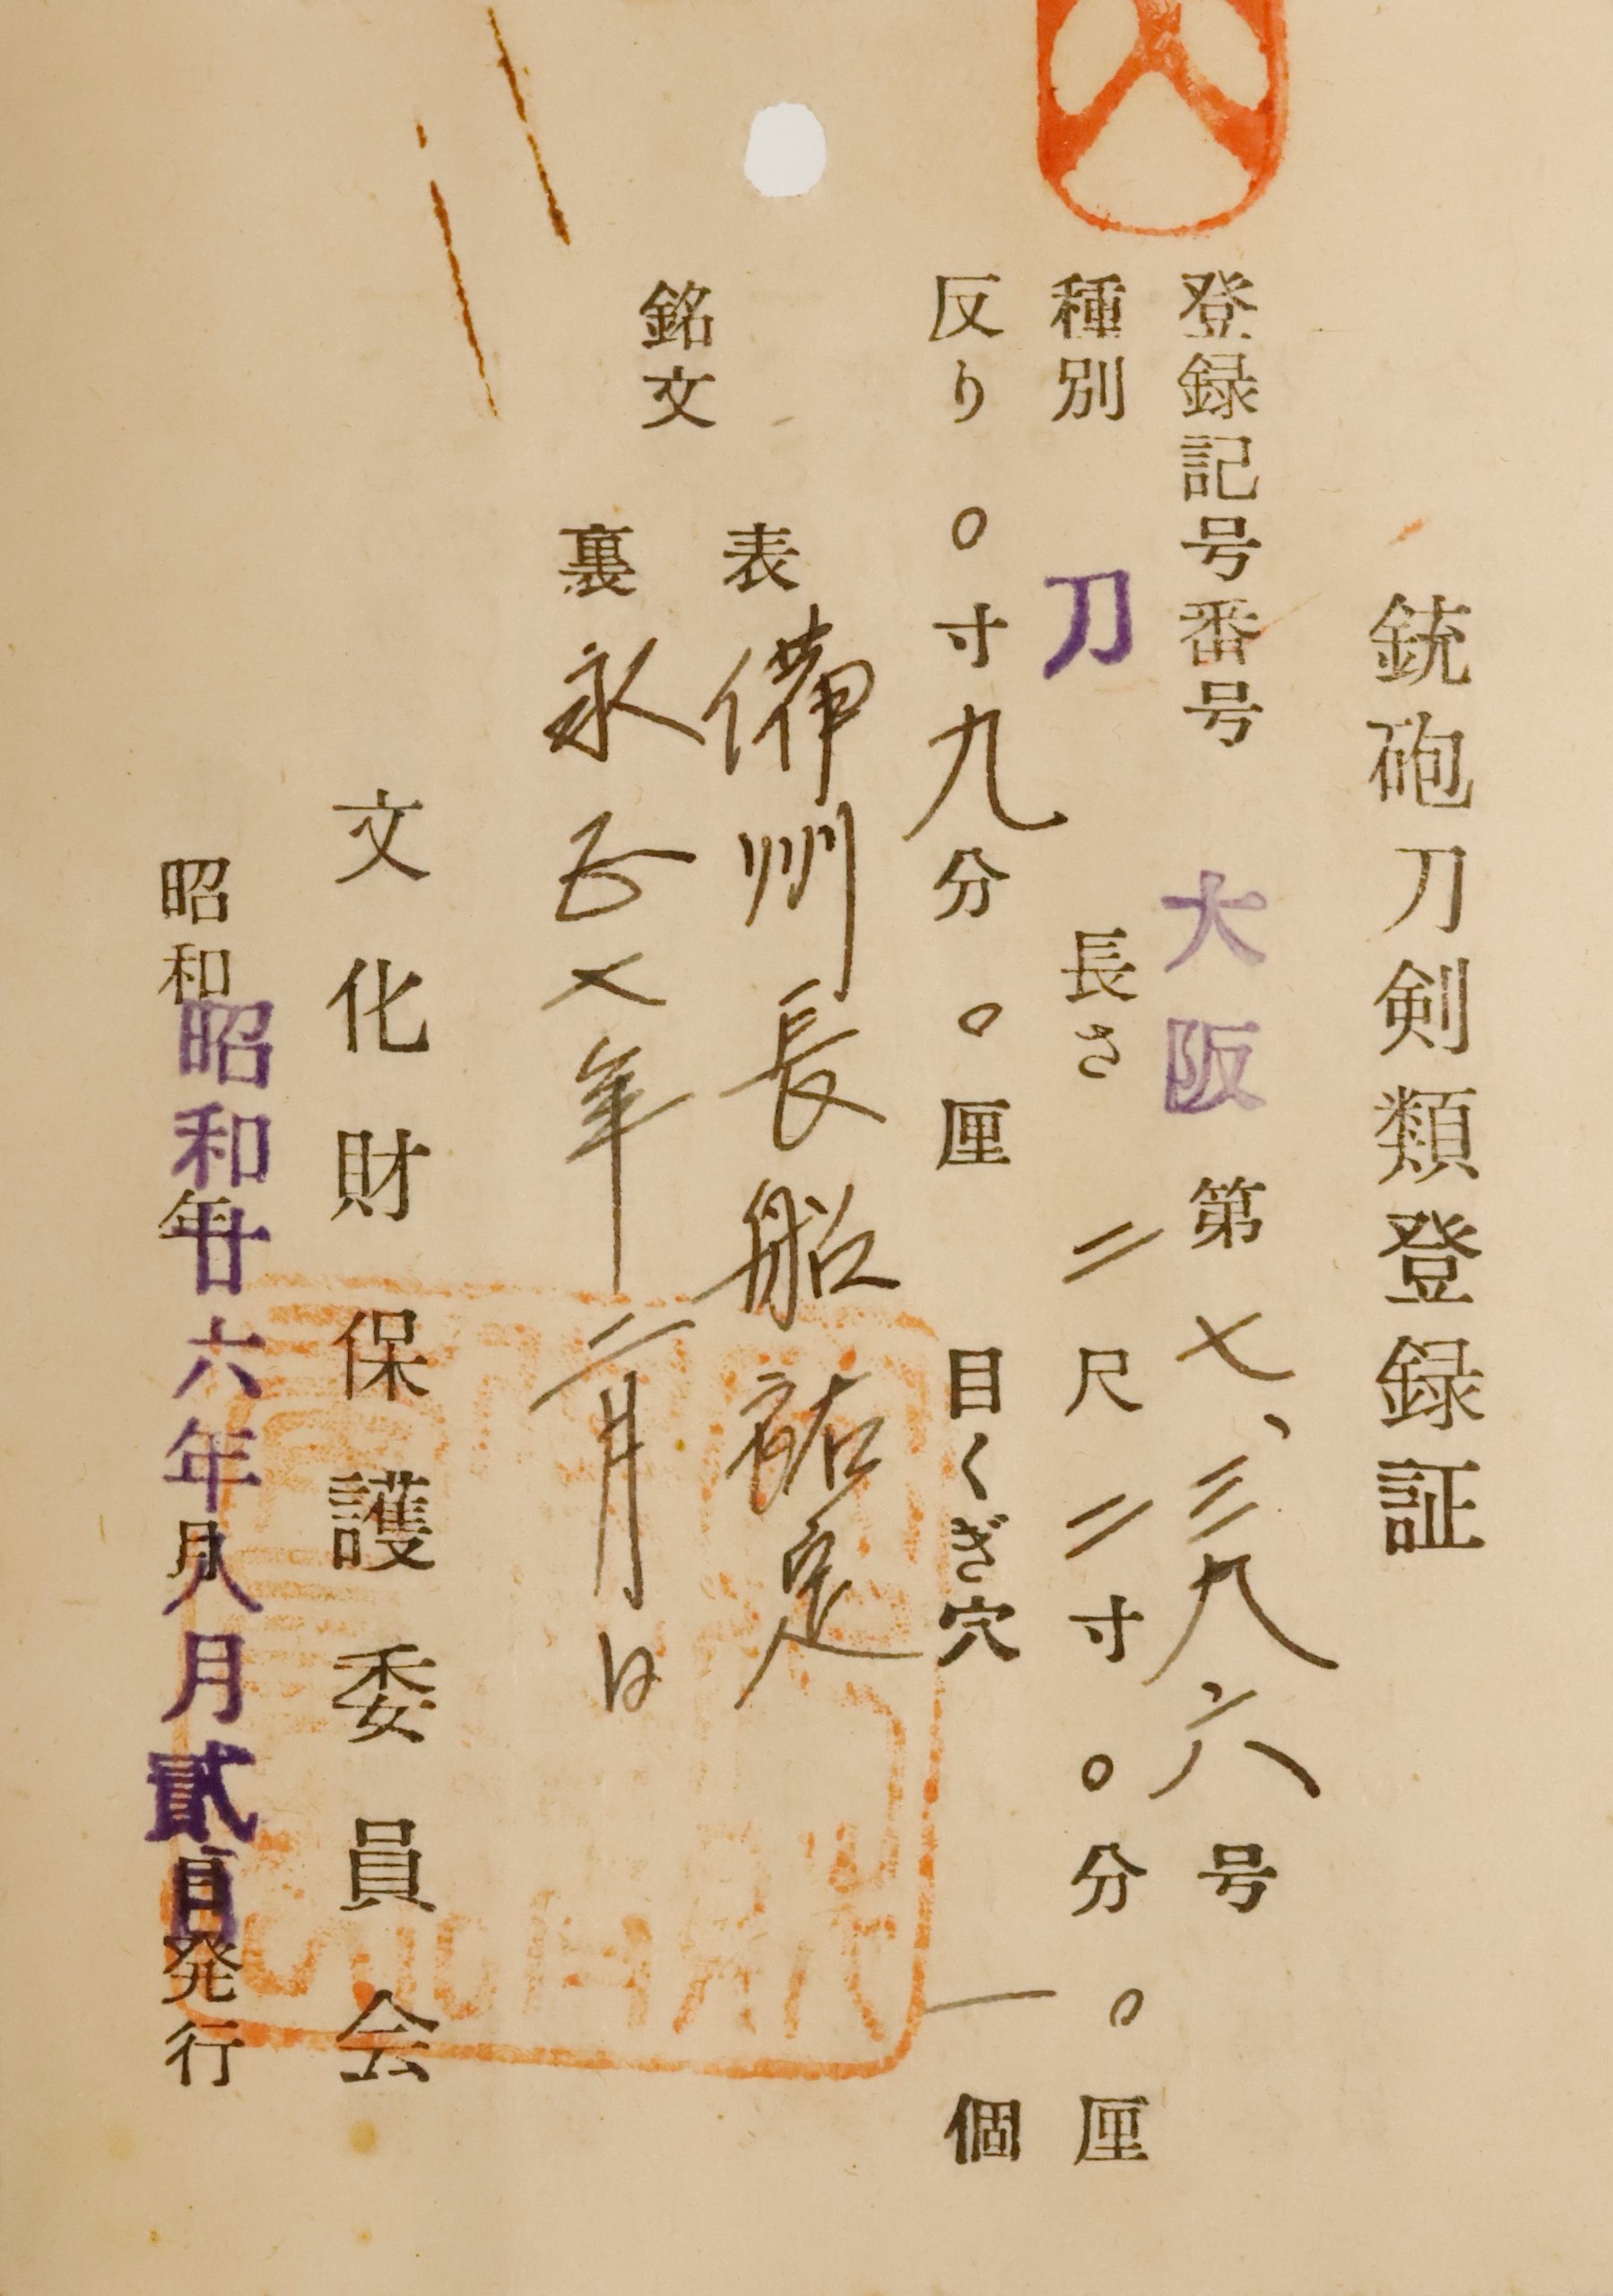 銃砲刀剣類登録証
登録記号番号 大阪 第七、三九六号
種別 刀 長さ 二尺二寸〇分〇厘
反り 〇寸九分〇厘 目くぎ穴 一個
銘文
表 備州長船祐定
裏 永正七年二月日
文化財保護委員会
昭和 年 月 日発行
昭和廿六年八月貳日